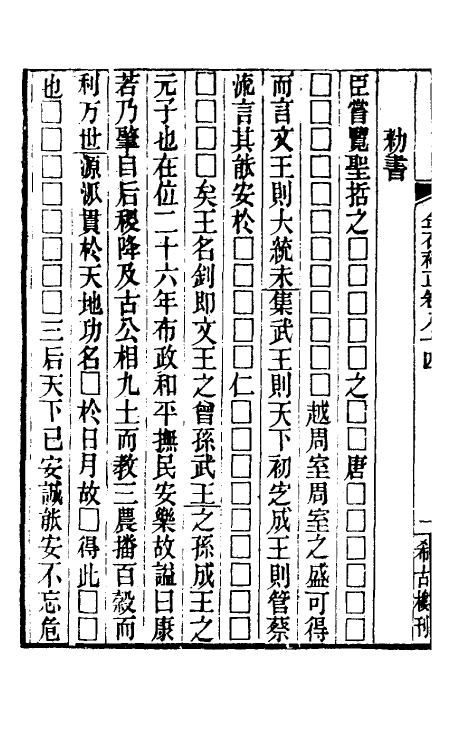 勑書
臣嘗覽聖括之□□□□之□□唐□□□□
□□□□□□□□□□越周室周室之盛可得
而言文王則大統未集武王則天下初定成王則管蔡
流言其能安於□□□□□仁□□□□□□□
□□□□矣王名釗即文王之曾孫武王之孫成王之
元子也在位二十六年布政和平撫民安樂故謚曰康
若乃肇自后稷降及古公相九土而教三農播百穀而
利万世源派貫於天地功名□於日月故□得此□□
也□□□□□□□□三后天下已安誠能安不忘危
金石萃正卷八十四
一
希古樓刊